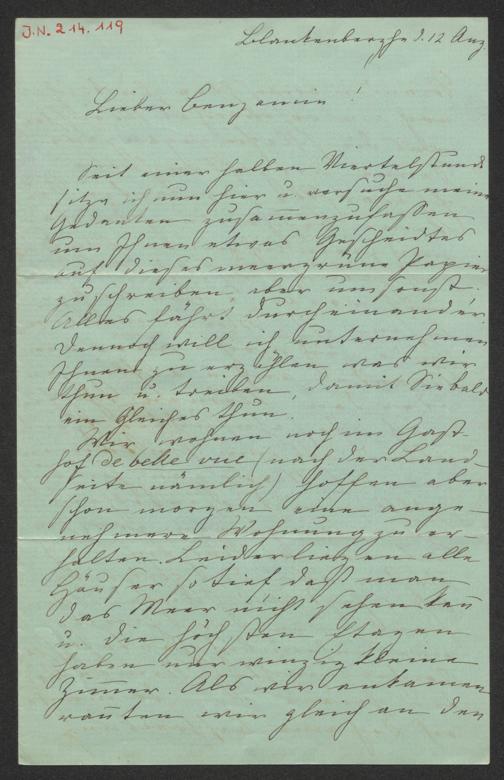 J.N. 214.119
Blankenberghe d. 12 Aug
Lieber Benzonnie!
Seit einer halben Viertelstund
sitze ich nun hier u. versuche meine
Gedanken zusam̄enzufassen
um Ihnen etwas Gescheidtes
auf dieses meergrüne Papier
zu schreiben, aber umsonst.
Alles fährt durcheinander.
Dennoch will ich unternehmen
Ihnen zu erzählen was wir
thun u. treiben, damit Sie bald
ein Gleiches thun.
Wir wohnen noch im Gast-
hof de belle vue (nach der Land-
seite nämlich) hoffen aber
schon morgen eine ange-
nehmere Wohnung zu er-
halten. Leider liegen alle
Häuser so tief daß man
das Meer nicht sehen kan̄
u. die höchsten Etagen
haben nur winzig kleine
Zim̄er. Als wir ankamen
ran̄ten wir gleich an den